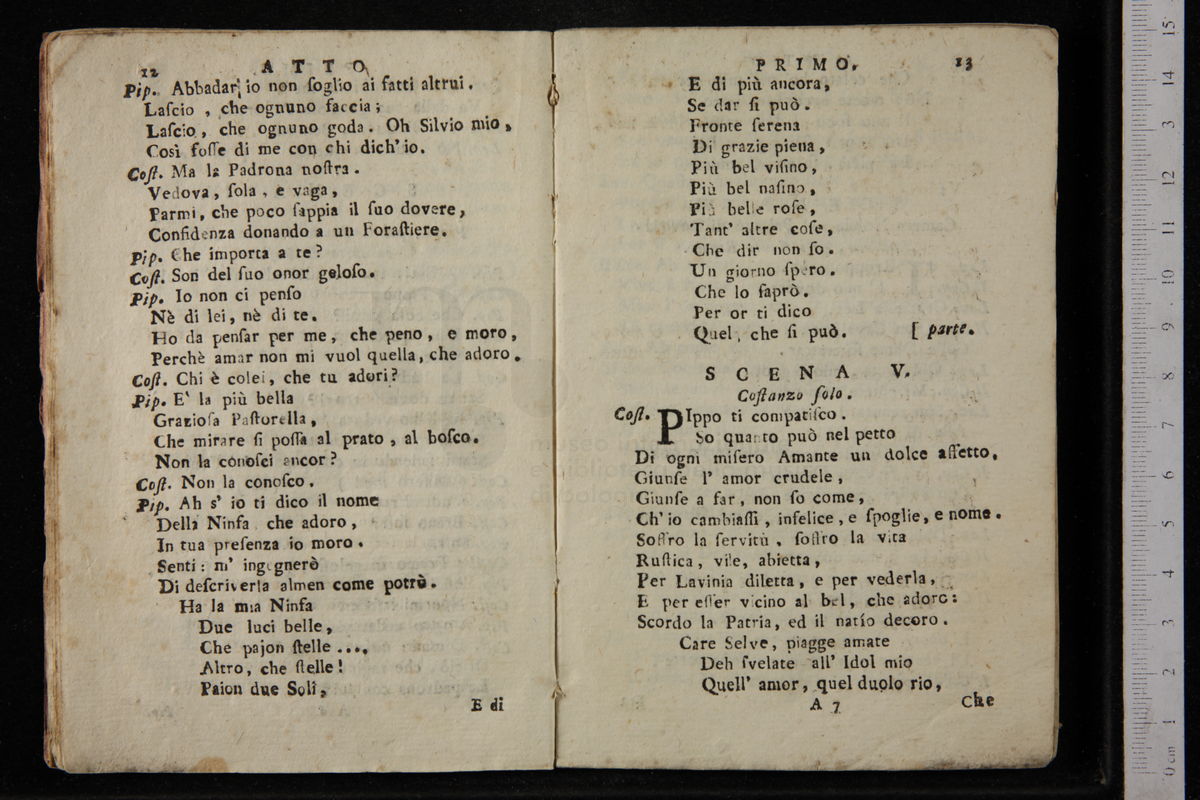 12 ATTO
Pip. Abbadar io non ſoglio ai fatti altrui.
Laſcio, che ognuno faccia;
Laſcio, che ognuno goda. Oh Silvio mio,
Così foſſe di me con chi dich' io.
Coſt. Ma la Padrona noſtra.
Vedova, ſola, e vaga,
Parmi, che poco ſappia il ſuo dovere,
Confidenza donando a un Foraſtiere.
Pip. Che importa a te?
Coſt. Son del ſuo onor geloſo.
Pip. Io non ci penſo
Nè di lei, nè di te.
Ho da penſar per me, che peno, e moro,
Perchè amar non mi vuol quella, che adoro.
Coſt. Chi è colei, che tu adori?
Pip. E' la più bella
Grazioſa Paſtorella,
Che mirare ſi poſſa al prato, al boſco.
Non la conoſci ancor?
Coſt. Non la conoſco.
Pip. Ah s' io ti dico il nome
Della Ninfa che adoro,
In tua preſenza io moro.
Senti: m' ingegnerò
Di deſcriverla almen come potrò.
Ha la mia Ninfa
Due luci belle,
Che pajon ſtelle ....
Altro, che ſtelle!
Paion due Soli,
E di
PRIMO. 13
E di più ancora,
Se dar ſi può.
Fronte ſerena
Di grazie piena,
Più bel viſino,
Più bel naſino,
Più belle roſe,
Tant' altre coſe,
Che dir non ſo.
Un giorno ſpero.
Che lo ſaprò.
Per or ti dico
Quel, che ſi può. [ parte.
SCENA V.
Coſtanzo ſolo.
Coſt. PIppo ti compatiſco.
So quanto può nel petto
Di ogni miſero Amante un dolce affetto,
Giunſe l' amor crudele,
Giunſe a far, non ſo come,
Ch' io cambiaſſi, infelice, e ſpoglie, e nome.
Soffro la ſervitù, ſoffro la vita
Ruſtica, vile, abietta,
Per Lavinia diletta, e per vederla,
E per eſſer vicino al bel, che adoro:
Scordo la Patria, ed il natío decoro.
Care Selve, piagge amate
Deh ſvelate all' Idol mio
Quell' amor, quel duolo rio,
A 7 Che
0 cm 1 2 3 4 5 6 7 8 9 10 11 12 13 14 15